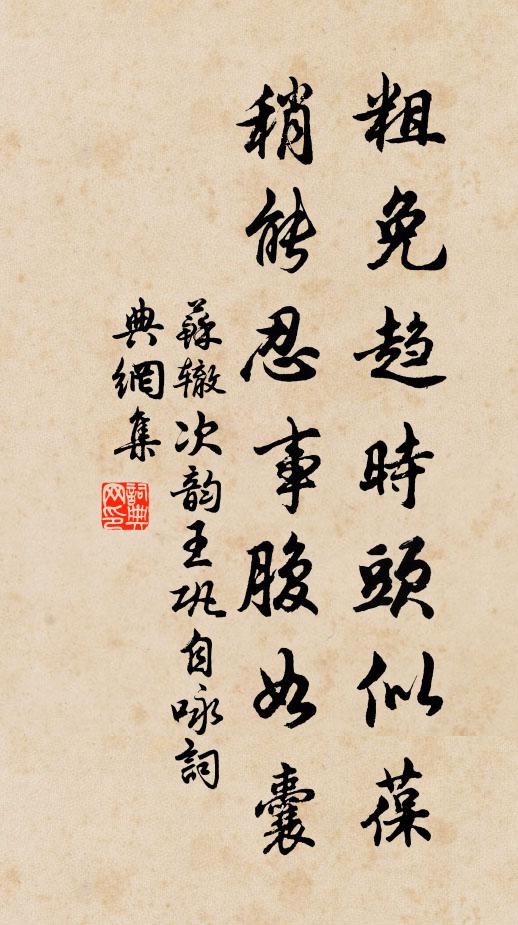 粗免趋時頭似葆
稍能忍事腹如囊
蘇辙次韵王巩自咏詞
典網集
詞典网印